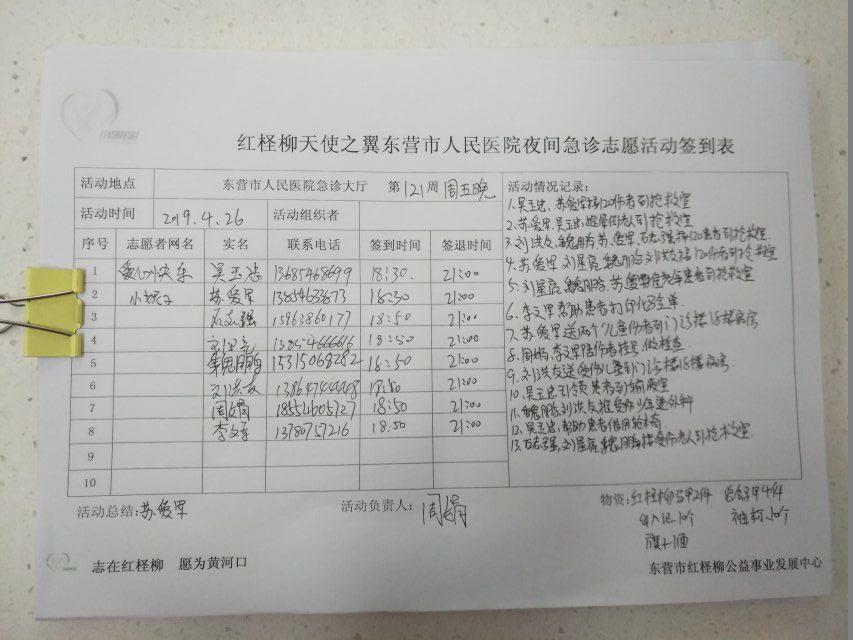 红柽柳天使之翼东营市人民医院夜间急诊志愿活动签到表
活动地点 东营市人民医院急诊大厅 第121周 周五晚
活动时间 2019.4.26 活动组织者
序号 志愿者网名 实名 联系电话 签到时间 签退时间
1 吴玉忠 13685468699 18:30 21:00
2 苏爱军 13854633673 18:30 21:00
3 石志强 15963860177 18:50 21:00
4 刘星亮 13854666616 18:50 21:00
5 魏鹏 15315068282 18:50 21:00
6 刘洪友 18:50 21:00
7 周娟 18554605727 18:50 21:00
8 李文军 13780757216 18:50 21:00
9
10
活动情况记录:
1.吴玉忠、苏爱军接120伤者到抢救室
2.苏爱军、吴玉忠 老人到抢救室
3.刘洪友、 苏爱军、石志强接120患者到抢救室
4.苏爱军、刘星亮、 刘洪友接120伤者到抢救室
5.刘星亮、 苏爱军 老年患者到抢救室
6.李文军帮助患者打印化验单
7.苏爱军送两个儿童伤者到门诊楼 病房
8.周娟、李文军陪伤者挂号、做检查
9.刘洪友送受伤儿童到门诊楼 病房
10.吴玉忠引领患者到输液室
11. 刘洪友推受伤少年进外科
12.吴玉忠帮助患者借用轮椅
13.石志强、刘星亮、 接受伤老人到抢救室
活动总结:苏爱军 活动负责人:周娟
物资:红柽柳马甲2件 马甲4件
10个 袖标10个
旗子1面
志在红柽柳 愿为黄河口
东营市红柽柳公益事业发展中心